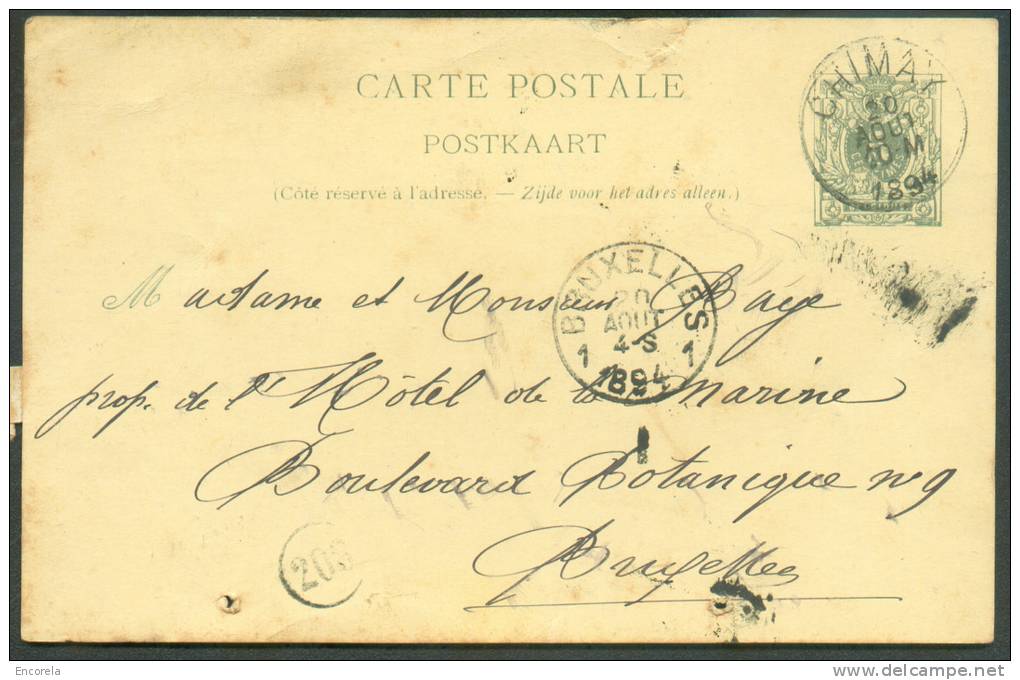 CARTE POSTALE
POSTKAART
(Côté réservé à l'adresse. — Zijde voor het adres alleen.)
CHIMAY
20
AOUT
10-M
1894
BRUXELLES
20
AOUT
4-S
1 1
1894
Madame et Monsieur
prop. de l'Hôtel de la Marine
Boulevard Botanique nº 9
Bruxelles
208
Encorela
www.delcampe.net